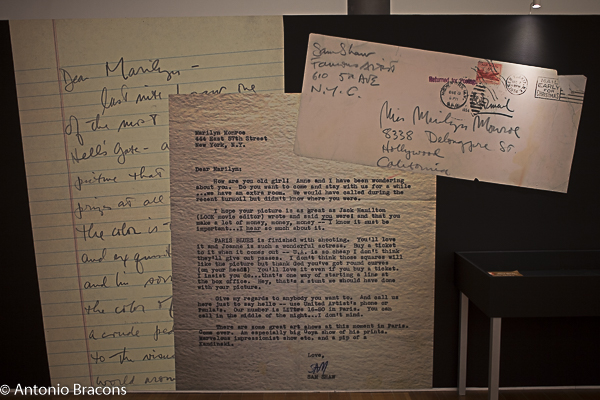 Dear Marilyn –
last nite I saw
of the most
Hell's Gate – a
picture that
prizes at all
the color is
and exquisite
and his
the color of
a crude
to the
world
Sam Shaw
Famous Artist
610 5th AVE
N.Y.C.
MAIL
EARLY
FOR
CHRISTMAS
Miss Marilyn Monroe
8338 Delongpre St.
Hollywood
California
Marilyn Monroe
444 East 57th Street
New York, N.Y.
Dear Marilyn:
How are you old girl? Anne and I have been wondering
about you. Do you want to come and stay with us for a while
..we have an extra room. We would have called during the
recent turmoil but didn't know where you were.
I hope your picture is as great as Jack Hamilton
(LOOK movie editor) wrote and said you were; and that you
make a lot of money, money, money -- I know it must be
important...I hear so much about it.
PARIS BLUES is finished with shooting. You'll love
it and Joanne is such a wonderful actress. Buy a ticket
to it when it comes out -- U.A. is so cheap I don't think
they'll give out passes. I don't think those squares will
like the picture but thank God you've got round curves
(on your head). You'll love it even if you buy a ticket.
I insist you do...that's one way of starting a line at
the box office. Hey, that's a stunt we should have done
with your picture.
Give my regards to anybody you want to. And call us
here just to say hello -- use United Artist's phone or
Paula's. Our number is LITRE 16-80 in Paris. You can
call in the middle of the night...I don't mind.
There are some great art shows at this moment in Paris.
Come over. An especially big Goya show of his prints.
Marvelous impressionist show etc, and a pip of a
Kandinski.
Love,
Sam
SAM SHAW
© Antonio Bracons